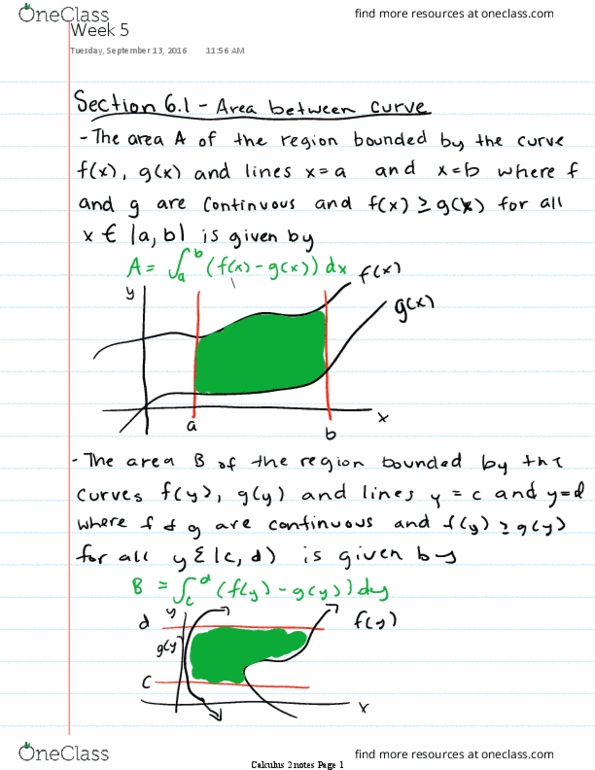 OneClass
find more resources at oneclass.com
Week 5
Tuesday, September 13, 2016 11:56 AM
Section 6.1 - Area between curve
- The area A of the region bounded by the curve
f(x), g(x) and lines x=a and x=b where f
and g are continuous and f(x) ≥ g(x) for all
x ∈ |a, b| is given by
A = ∫ₐᵇ (f(x) - g(x)) dx
f(x)
y
g(x)
a
b
x
- The area B of the region bounded by the
curves f(y), g(y) and lines y = c and y=d
where f & g are continuous and f(y) ≥ g(y)
for all y ∈ |c, d) is given by
B = ∫_c^d (f(y) - g(y)) dy
d
y
f(y)
g(y)
c
x
OneClass
find more resources at oneclass.com
Calculus 2 notes Page 1